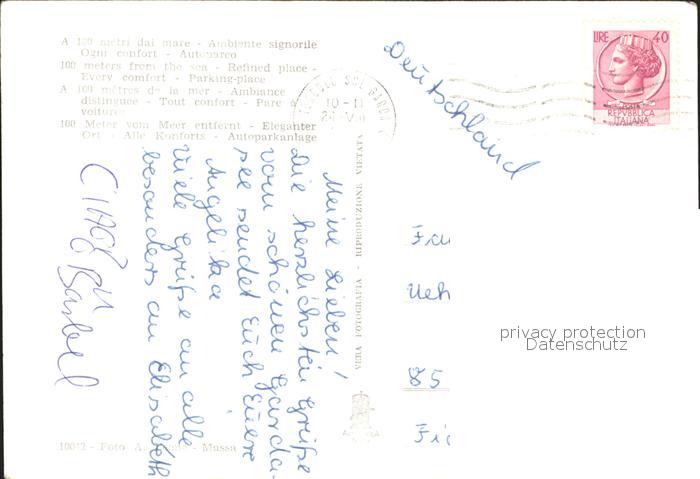 A 100 metri dal mare - Ambiente signorile
Ogni confort - Autoparco
100 meters from the sea - Refined place -
Every comfort - Parking-place
A 100 mètres de la mer - Ambiance
distinguee - Tout confort - Parc à
voitures
100 Meter vom Meer entfernt - Eleganter
Ort - Alle Konforts - Autoparkanlage
LIRE 40
POSTA
REPVBBLICA
ITALIANA
10 - 11
Deutschland
Meine Lieben!
Die herzlichsten Grüße
vom schönen Garda-
see sendet Euch Eure
Angelika
Viele Grüße an alle
besonders an Elisabeth
CIAO
Bärbel
VERA FOTOGRAFIA - RIPRODUZIONE VIETATA
Ueh
85
privacy protection
Datenschutz
- Foto
- Massa